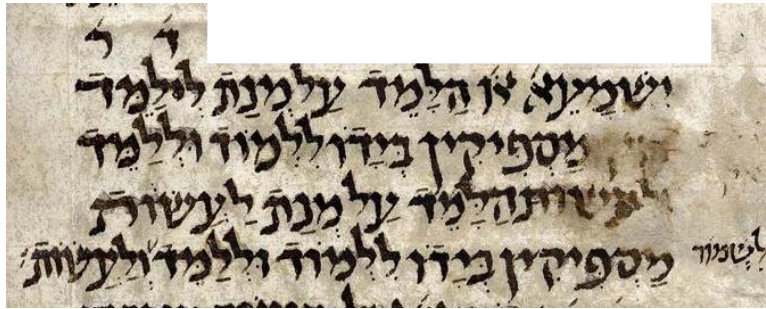 ד ר
יִשְׁמָעֵא או הַלָּמֵד עַל מְנָת לִילַמֵּד
מַסְפִּיקִין בְּיָדוֹ לִלְמוֹד וּלְלַמֵּד
לעשות הַלָּמֵד עַל מְנָת לַעֲשׂוֹת
מַסְפִּיקִין בְּיָדוֹ לִלְמוֹד וּלְלַמֵּד וְלַעֲשׂוֹת
לִשְׁמוֹר